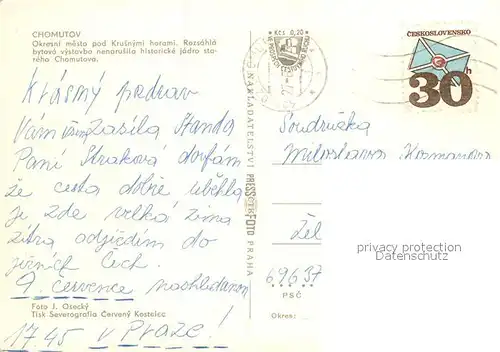 CHOMUTOV
Okresní město pod Krušnými horami. Rozsáhlá
bytová výstavba nenarušila historické jádro sta-
rého Chomutova.
Krásný pozdrav
Vám všem zasílá Standa
Paní Straková doufám
že cesta dobře uběhla
je zde velká zima
zítra odjíždím do
jižních Čech.
9. července nashledanou
17.45 v Praze!
Foto J. Osecký
Tisk Severografia Červený Kostelec
NAKLADATELSTVÍ PRESSFOTO PRAHA
Kčs 0,20
ČESKOSLOVENSKO
30h
Soudružka
Miloslava Kosmanova
Žel
privacy protection
Datenschutz
696 37
PSČ
Okres: